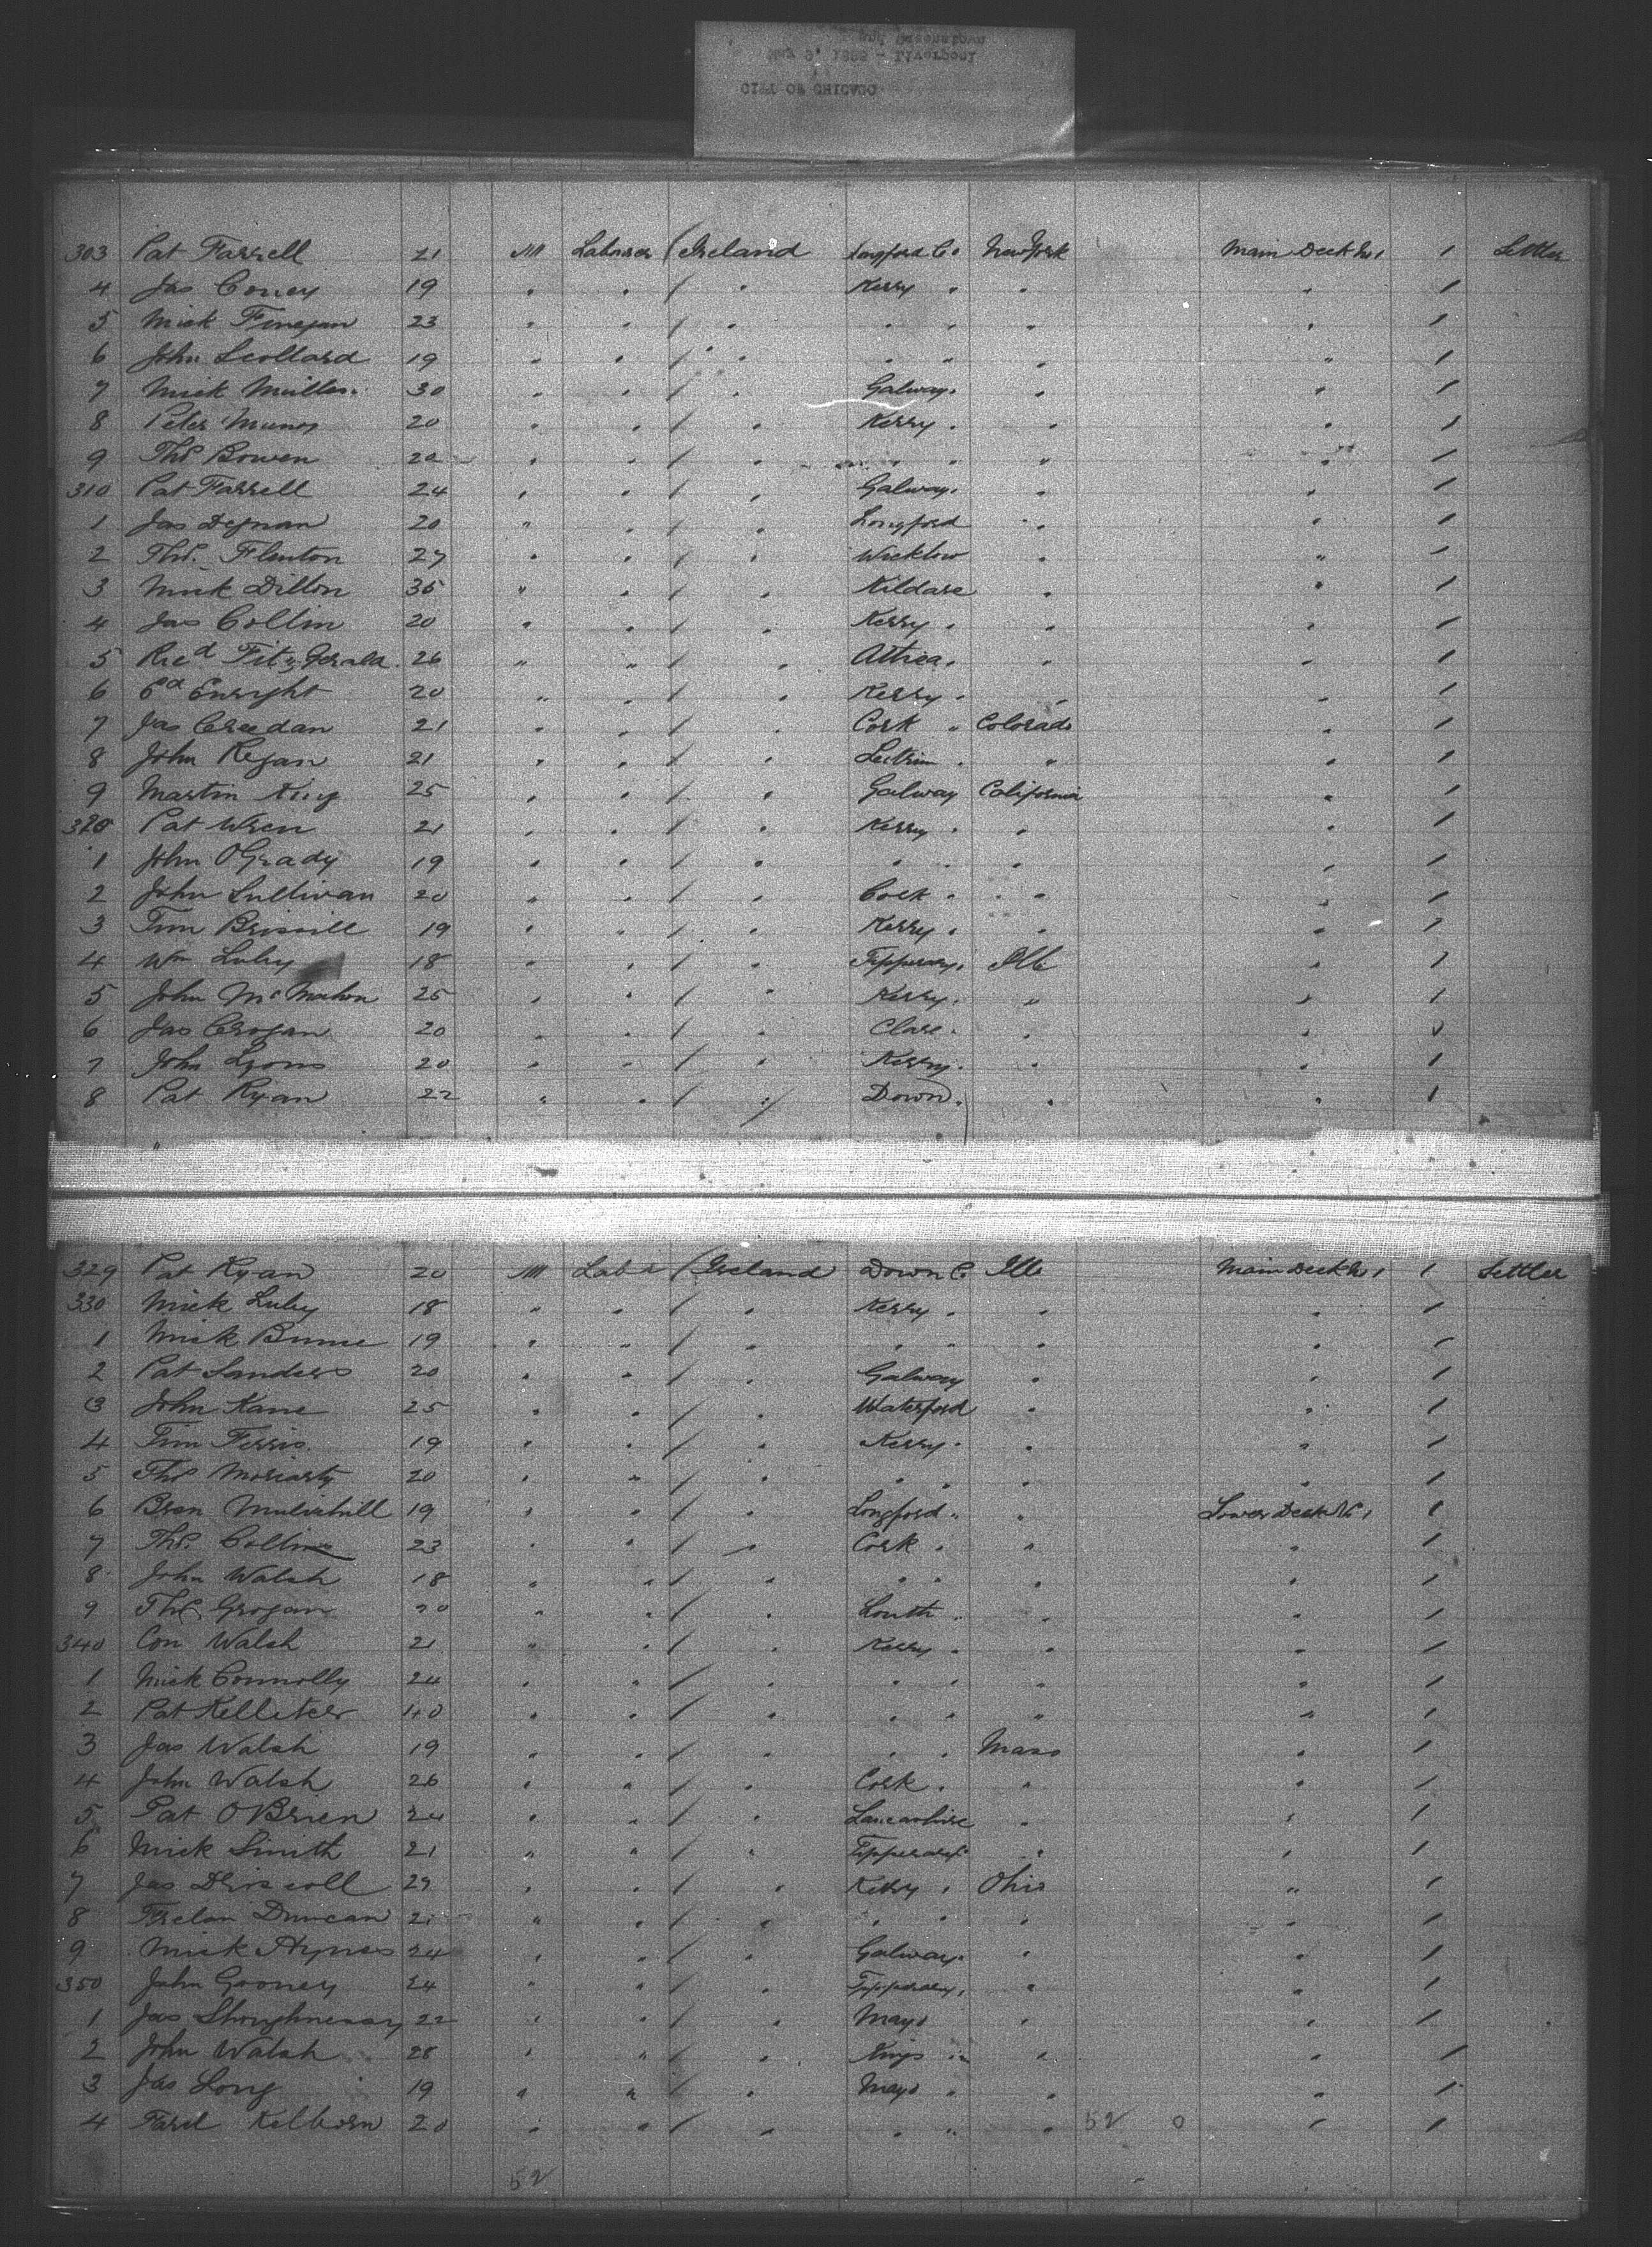 CITY OF CHICAGO
May 3, 1888 - Liverpool
and Queenstown
303 Pat Farrell 21 M Labourer / Ireland Longford Co New York Main Deck No 1 1 Settler
4 Jas Coney 19 " " / " Kerry " " " 1
5 Mick Finegan 23 " " / " " " " " 1
6 John Scollard 19 " " / " " " " " 1
7 Mick Mullen 30 " " / " Galway " " 1
8 Peter 20 " " / " Kerry " " " 1
9 Thos Bowen 20 " " / " " " " " 1
310 Pat Farrell 24 " " / " Galway " " 1
1 Jas Degnan 20 " " / " Longford " " 1
2 Thos. Flinton 27 " " / " Wicklow " " 1
3 Mick Dillon 35 " " / " Kildare " " 1
4 Jas Collin 20 " " / " Kerry " " " 1
5 Ricd Fitzgerald 26 " " / " " " 1
6 Ed Enright 20 " " / " Kerry " " " 1
7 Jas Creedan 21 " " / " Cork " Colorado " 1
8 John Regan 21 " " / " Leitrim " " " 1
9 Martin King 25 " " / " Galway California " 1
320 Pat Wren 21 " " / " Kerry " " " 1
1 John O'Grady 19 " " / " " " " " 1
2 John Sullivan 20 " " / " Cork " " " 1
3 Tim 19 " " / " Kerry " " " 1
4 Wm Luby 18 " " / " Tipperary Ills " 1
5 John McMahon 25 " " / " Kerry " " " 1
6 Jas Crogan 20 " " / " Clare " " " 1
7 John Lyons 20 " " / " Kerry " " " 1
8 Pat Ryan 22 " " / " Down " " " 1
329 Pat Ryan 20 M Labr / Ireland Down Co Ills Main Deck No 1 1 Settler
330 Mick Luby 18 " " / " Kerry " " " 1
1 Mick 19 " " / " " " " " 1
2 Pat Sanders 20 " " / " Galway " " 1
3 John Kane 25 " " / " Waterford " " 1
4 Tim Ferris 19 " " / " Kerry " " " 1
5 Thos Moriarty 20 " " / " " " " " 1
6 Bren Mulvihill 19 " " / " Longford " " Lower Deck No 1 1
7 Thos. Collins 23 " " / " Cork " " " 1
8 John Walsh 18 " " / " " " " " 1
9 Thos. Grogan 20 " " / " Louth " " " 1
340 Con Walsh 21 " " / " Kerry " " " 1
1 Mick Connolly 24 " " / " " " " " 1
2 Pat Kelleher 40 " " / " " " " " 1
3 Jas Walsh 19 " " / " " " Mass " 1
4 John Walsh 26 " " / " Cork " " " 1
5 Pat O'Brien 24 " " / " Lancashire " " 1
6 Mick Smith 21 " " / " Tipperary " " 1
7 Jas Driscoll 29 " " / " Kerry " Ohio " 1
8 Duncan 21 " " / " " " " " 1
9 Mick Hynes 24 " " / " Galway " " 1
350 John Gooney 24 " " / " Tipperary " " 1
1 Jas Shoughnessy 22 " " / " Mayo " " 1
2 John Walsh 28 " " / " Kings " " " 1
3 Jas Long 19 " " / " Mayo " " " 1
4 Ford Kilborn 20 " " / " " " " 52 0 " 1
52